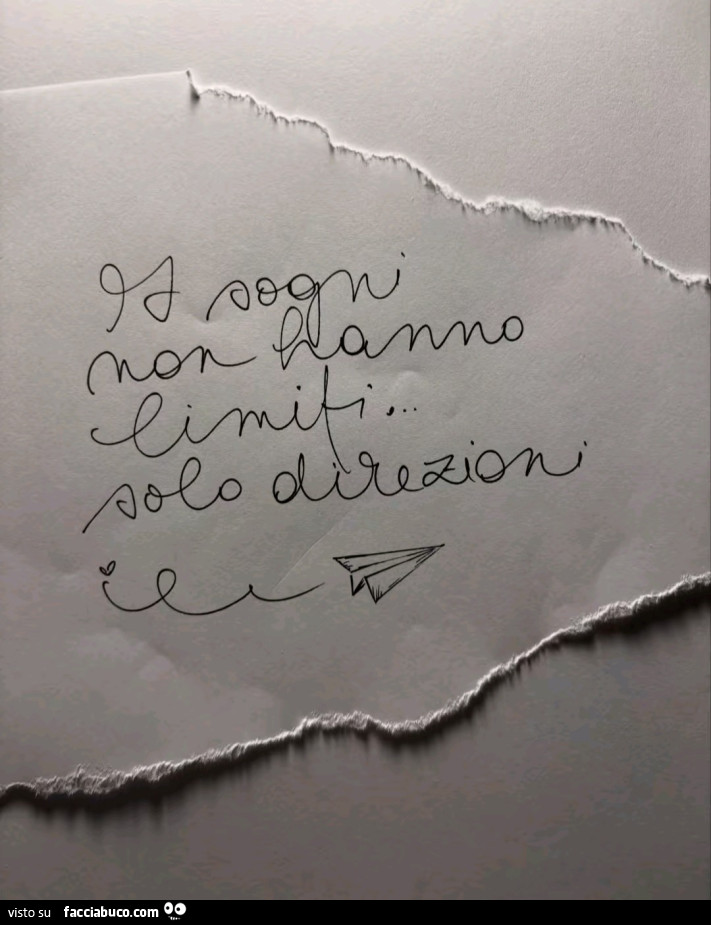 I sogni
non hanno
limiti...
solo direzioni
visto su facciabuco.com